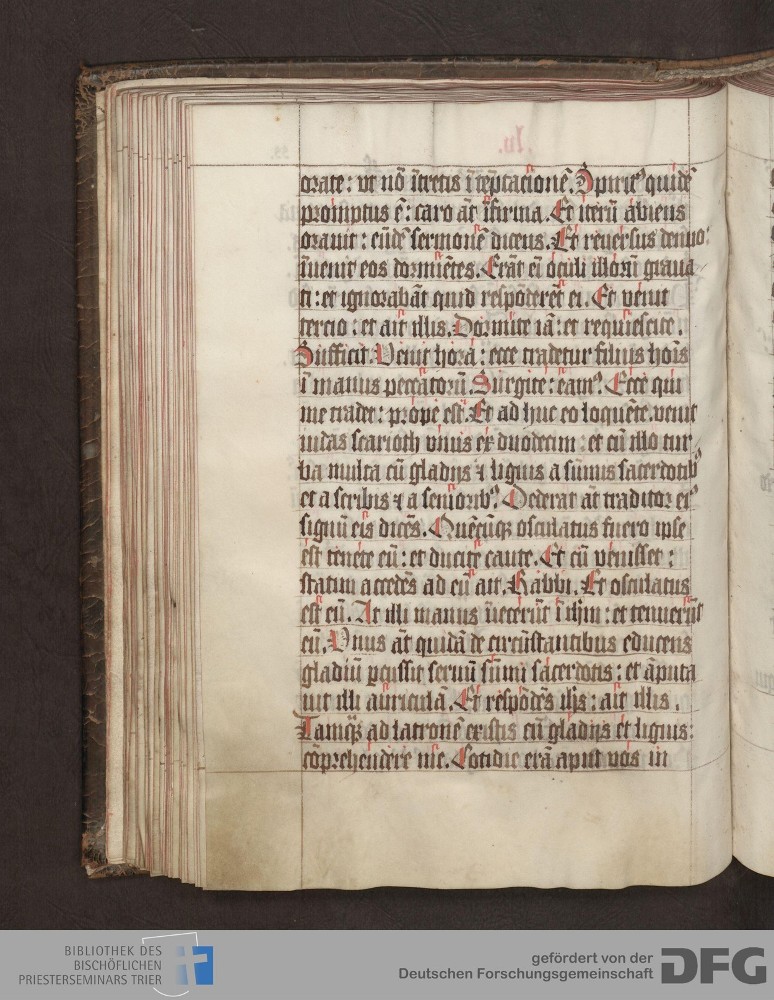 orate: vt nō ītretis ī tēptacionē. Spirit⁹ quidē
promptus ē: caro āt īfirma. Et iterū abiens
orauit: eūdē sermonē dicens. Et reuersus denuo:
īuenit eos dormiētes. Erāt eī oculi illorū graua
ti: et ignorabāt quid respōderēt ei. Et venit
tercio: et ait illis. Dormite iā: et requiescite.
Sufficit. Venit hora: ecce tradetur filius hoīs
ī manus peccatorū. Surgite: eam⁹. Ecce qui
me tradet: prope est. Et ad huc eo loquēte. venit
iudas scarioth vnus ex duodecim: et cū illo tur
ba multa cū gladijs ⁊ lignis a sūmis sacerdotib⁹
et a scribis ⁊ a seniorib⁹. Dederat āt traditor ei⁹
signū eis dicēs. Quecūqꝫ osculatus fuero ipse
est tenete eū: et ducite caute. Et cū venisset:
statim accedēs ad eū ait. Rabbi. Et osculatus
est eū. At illi manus iīecerūt ī ihm: et tenuerūt
eū. Vnus āt quidā de circūstantibus educens
gladiū ꝑcussit seruū sūmi sacerdotis: et āputa
uit illi auriculā. Et respōdēs ihs: ait illis.
Tamqꝫ ad latronē existis cū gladijs et lignis:
cōprehendere me. Cotidie erā aput vos in
BIBLIOTHEK DES
BISCHÖFLICHEN
PRIESTERSEMINARS TRIER
gefördert von der
Deutschen Forschungsgemeinschaft
DFG